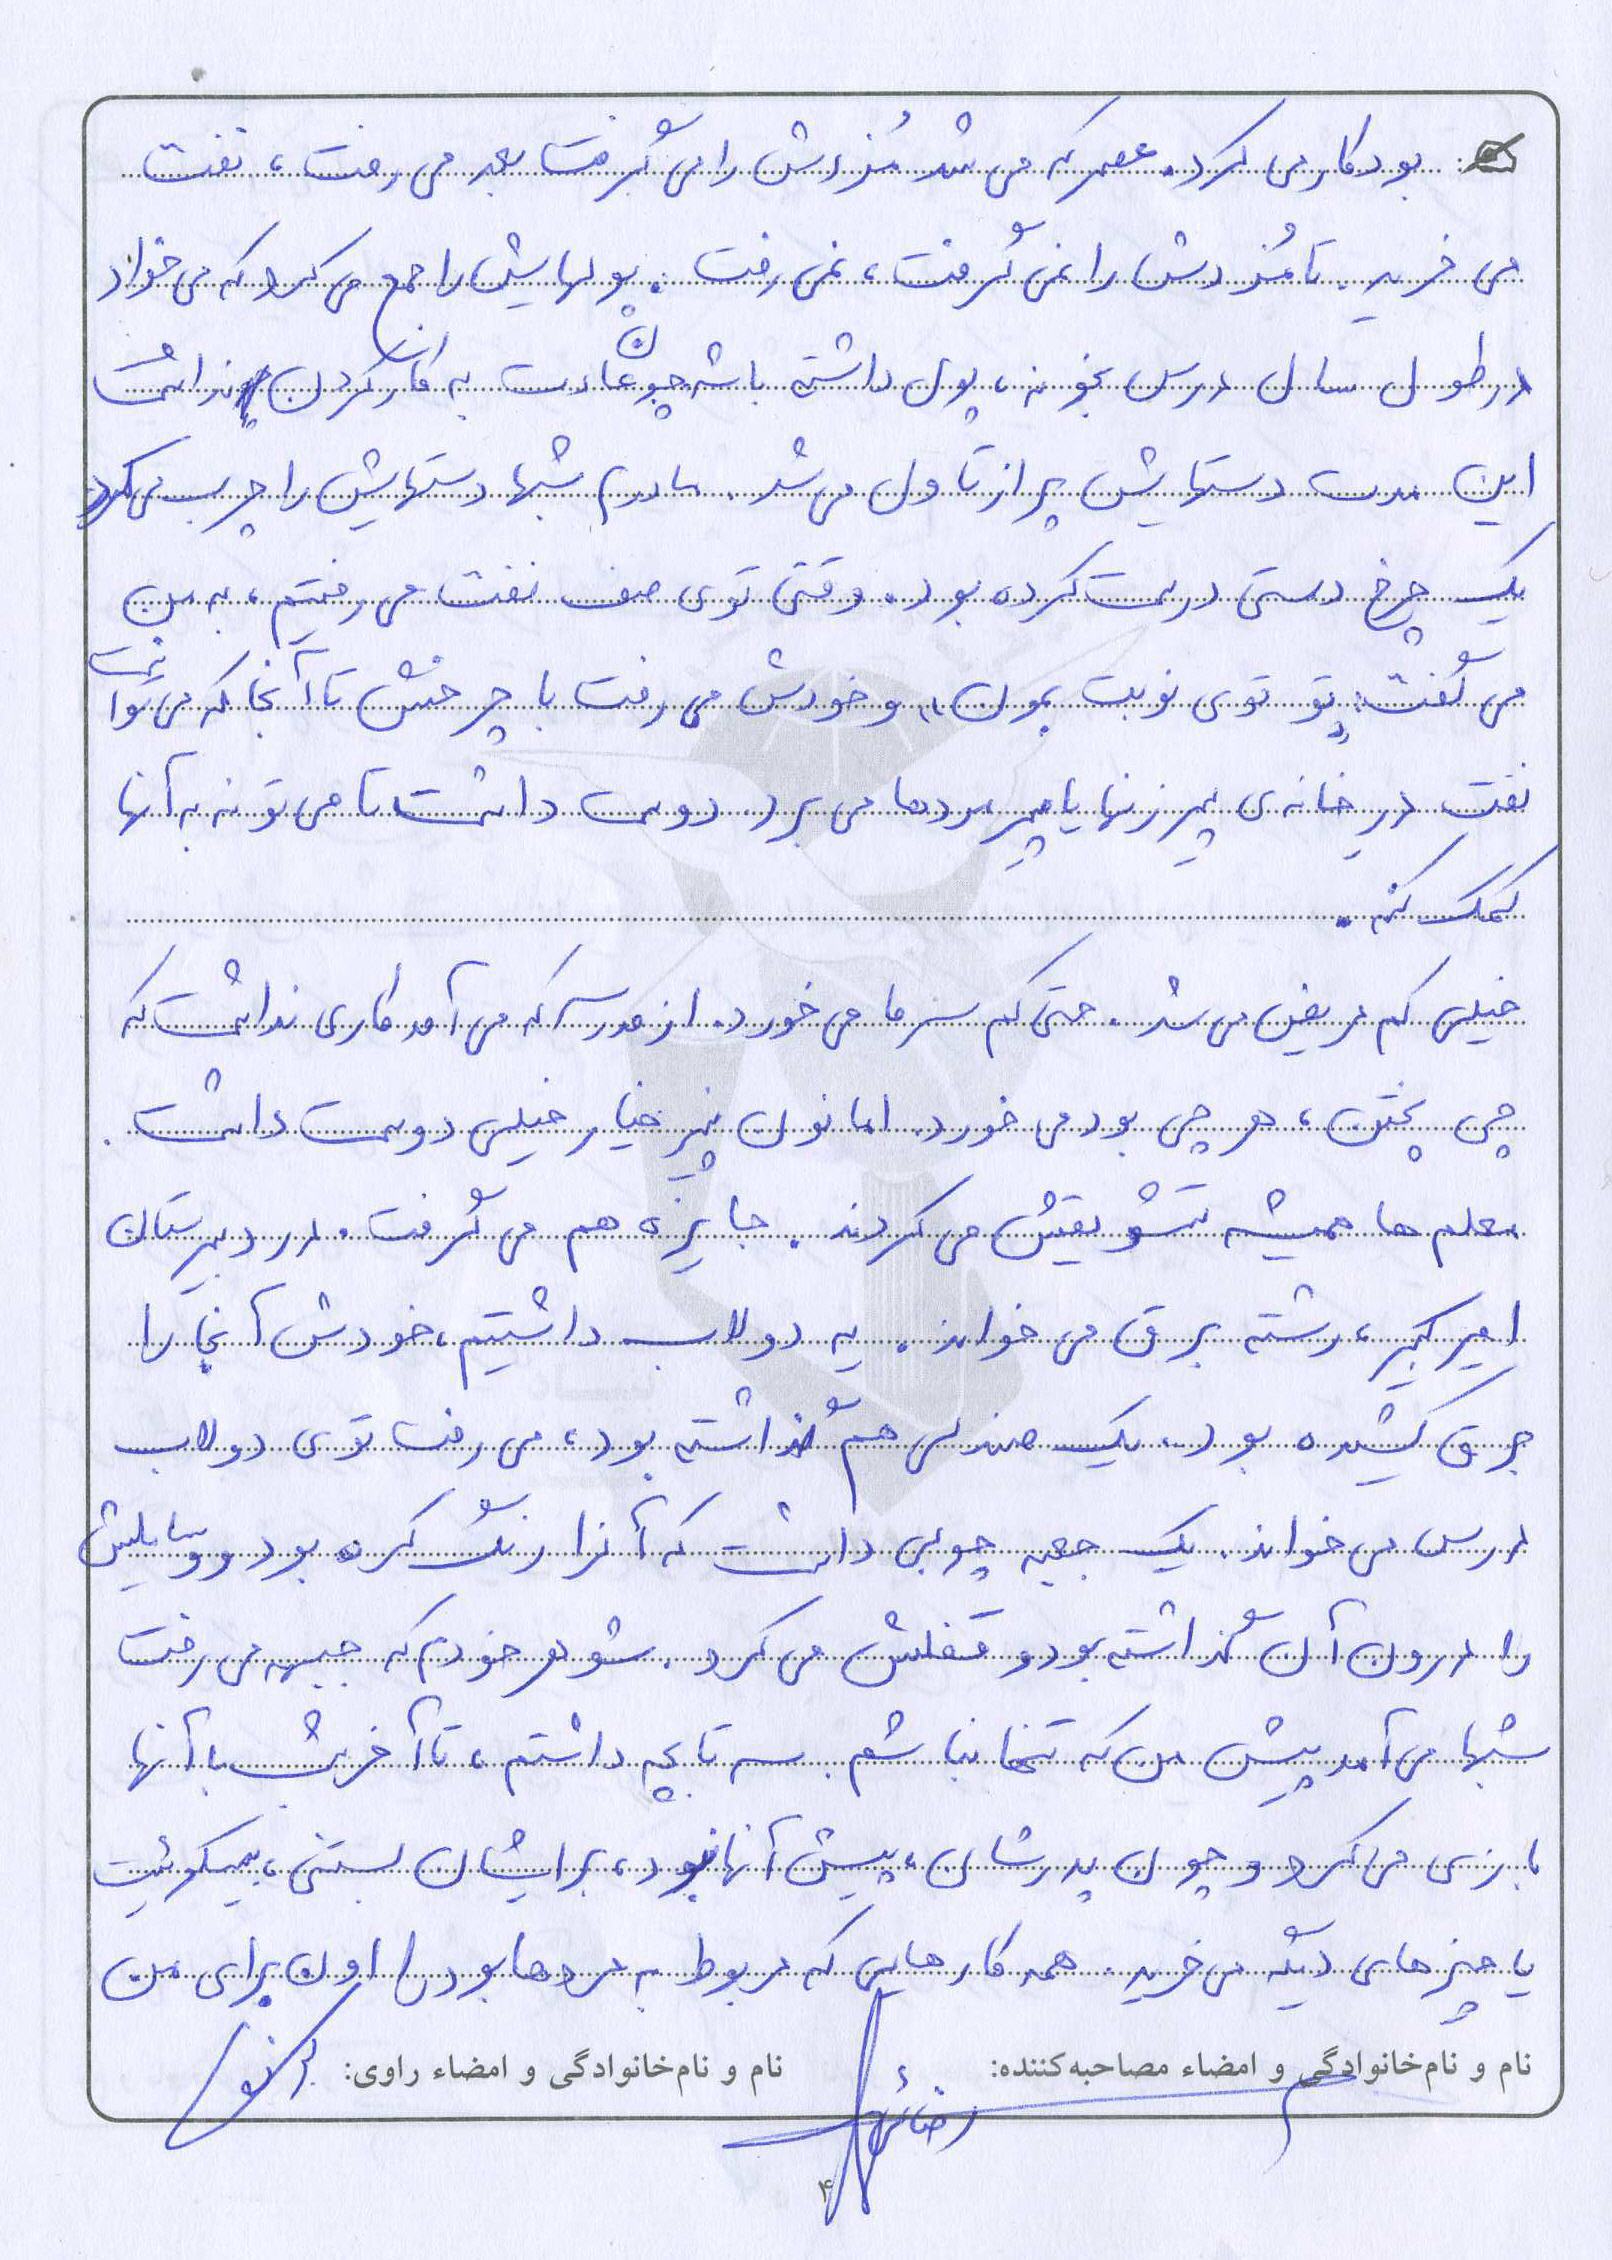 بود کار می کرد. عصر که می شد مُزدش را می گرفت بعد می رفت، نفت
می خرید. تا مُزدش را نمی گرفت، نمی رفت. پولهایش را جمع می کرد که می خواد
در طول سال درس بخونه، پول داشته باشه چون عادت به کار کردن نداشت
این مدت دستهایش پر از تاول می شد. مادرم شبها دستهایش را چرب می کرد
یک چرخ دستی درست کرده بود. وقتی توی صف نفت می رفتیم، به من
می گفت: «تو توی نوبت بمون» و خودش می رفت با چرخش تا آنجا که می توانست
نفت در خانه ی پیرزنها یا پیرمردها می برد. دوست داشت تا می تونه به آنها
کمک کنه.
خیلی کم مریض می شد. حتی کم سرما می خورد. از مدرسه که می آمد کاری نداشت که
چی پختن، هر چی بود می خورد. اما نون پنیر خیار خیلی دوست داشت.
معلم ها همیشه تشویقش می کردند. جایزه هم می گرفت. در دبیرستان
امیرکبیر، رشته برق می خواند. یه دولاب داشتیم، خودش آنجا را
برق کشیده بود، یک صندلی هم گذاشته بود، می رفت توی دولاب
درس می خواند. یک جعبه چوبی داشت که آنرا رنگ کرده بود و وسایلش
را درون آن گذاشته بود و قفلش می کرد. شوهر خودم که جبهه می رفت
شبها می آمد پیش من که تنها نباشم. سه تا بچه داشتم، تا آخر شب با آنها
بازی می کرد و چون پدرشان، پیش آنها نبود، برایشان بستنی، بیسکوئیت
یا چیزهای دیگه می خرید. همه کارهایی که مربوط به مردها بود را اون برای من
نام و نام‌خانوادگی و امضاء مصاحبه‌کننده: نام و نام‌خانوادگی و امضاء راوی:
۴